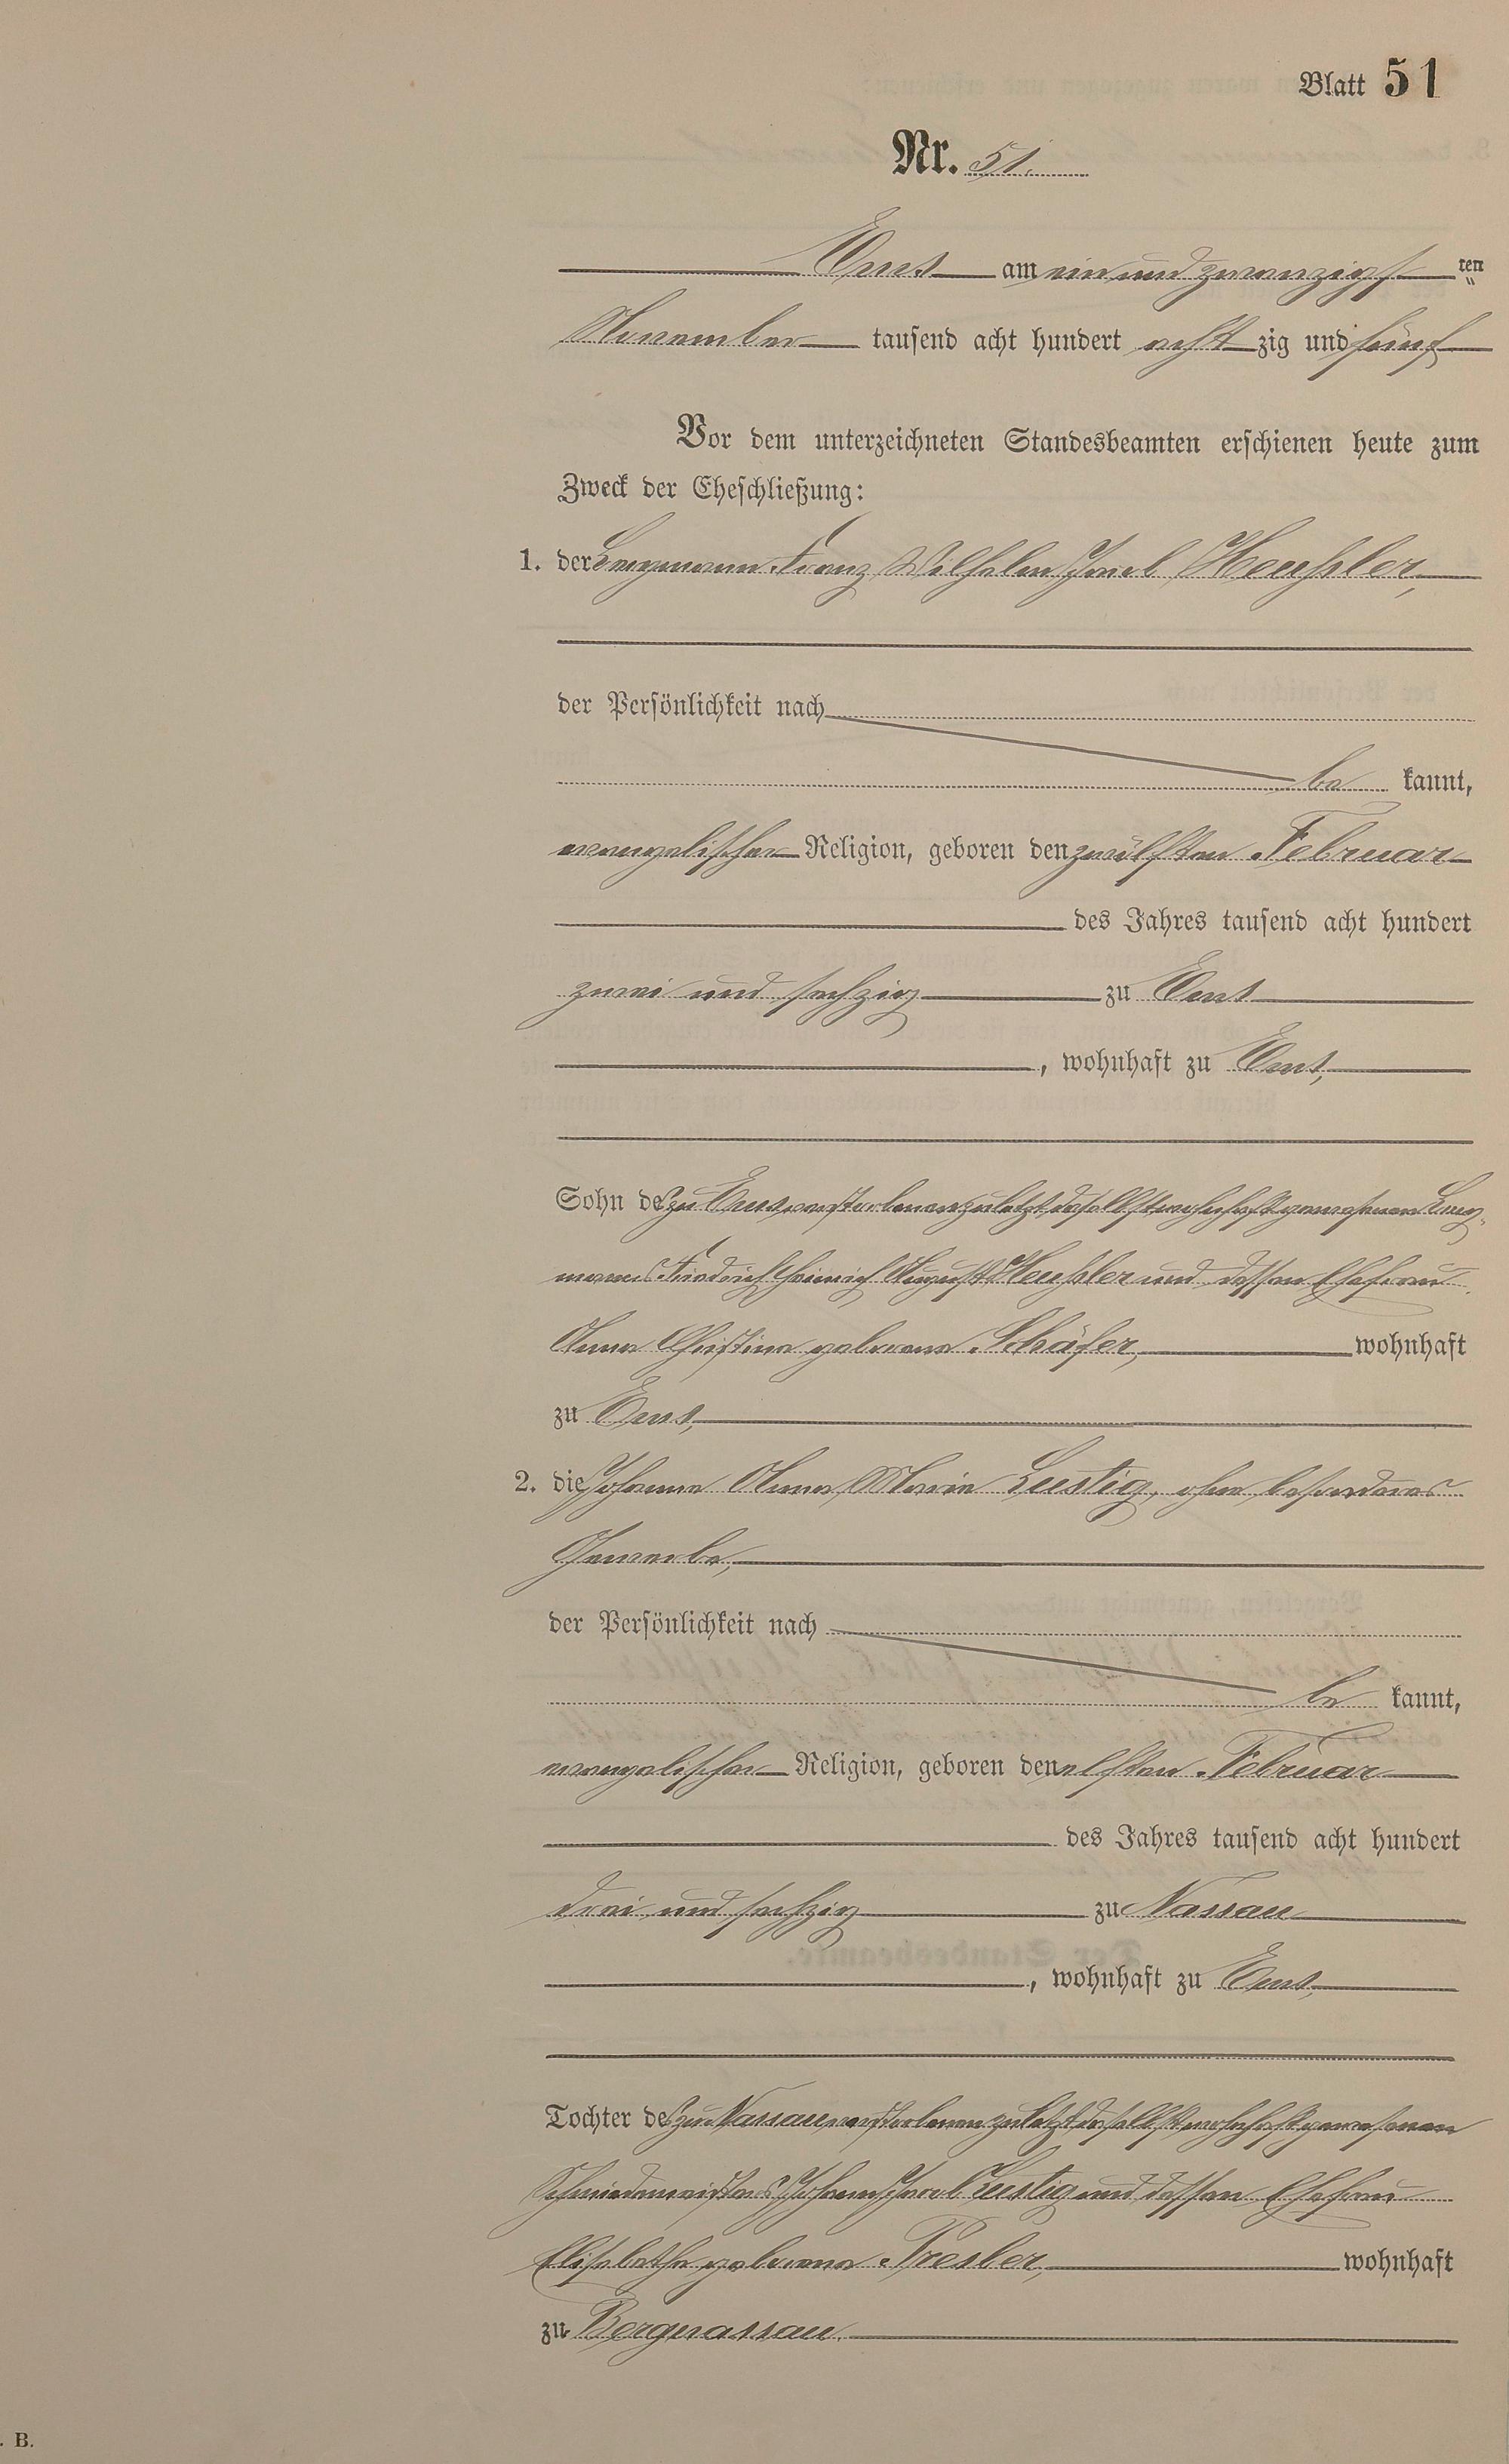 Blatt 51
Nr. 51.
Ems am ein und zwanzigst ten
November tausend acht hundert acht zig und fünf
Vor dem unterzeichneten Standesbeamten erschienen heute zum
Zweck der Eheschließung:
1. der Bergmann Franz Wilhelm Jacob Heußler,
der Persönlichkeit nach
be kannt,
evangelischer Religion, geboren den zwölften Februar
des Jahres tausend acht hundert
zwei und sechzig zu Ems
, wohnhaft zu Ems,
Sohn des zu Ems verstorbenen zuletzt daselbst wohnhaft gewesenen Berg-
manns Friedrich Heinrich August Heußler und dessen Ehefrau
Anna Christina geborene Schäfer, wohnhaft
zu Ems,
2. die Johanna Anna Maria Lustig, ohne besonderes
Gewerbe,
der Persönlichkeit nach
be kannt,
evangelischer Religion, geboren den elften Februar
des Jahres tausend acht hundert
drei und sechzig zu Nassau
, wohnhaft zu Ems,
Tochter des zu Nassau verstorbenen zuletzt daselbst wohnhaft gewesenen
Schmiedemeisters Johann Jacob Lustig und dessen Ehefrau
Elisabetha geborene Presber, wohnhaft
zu Bergnassau.
. B.